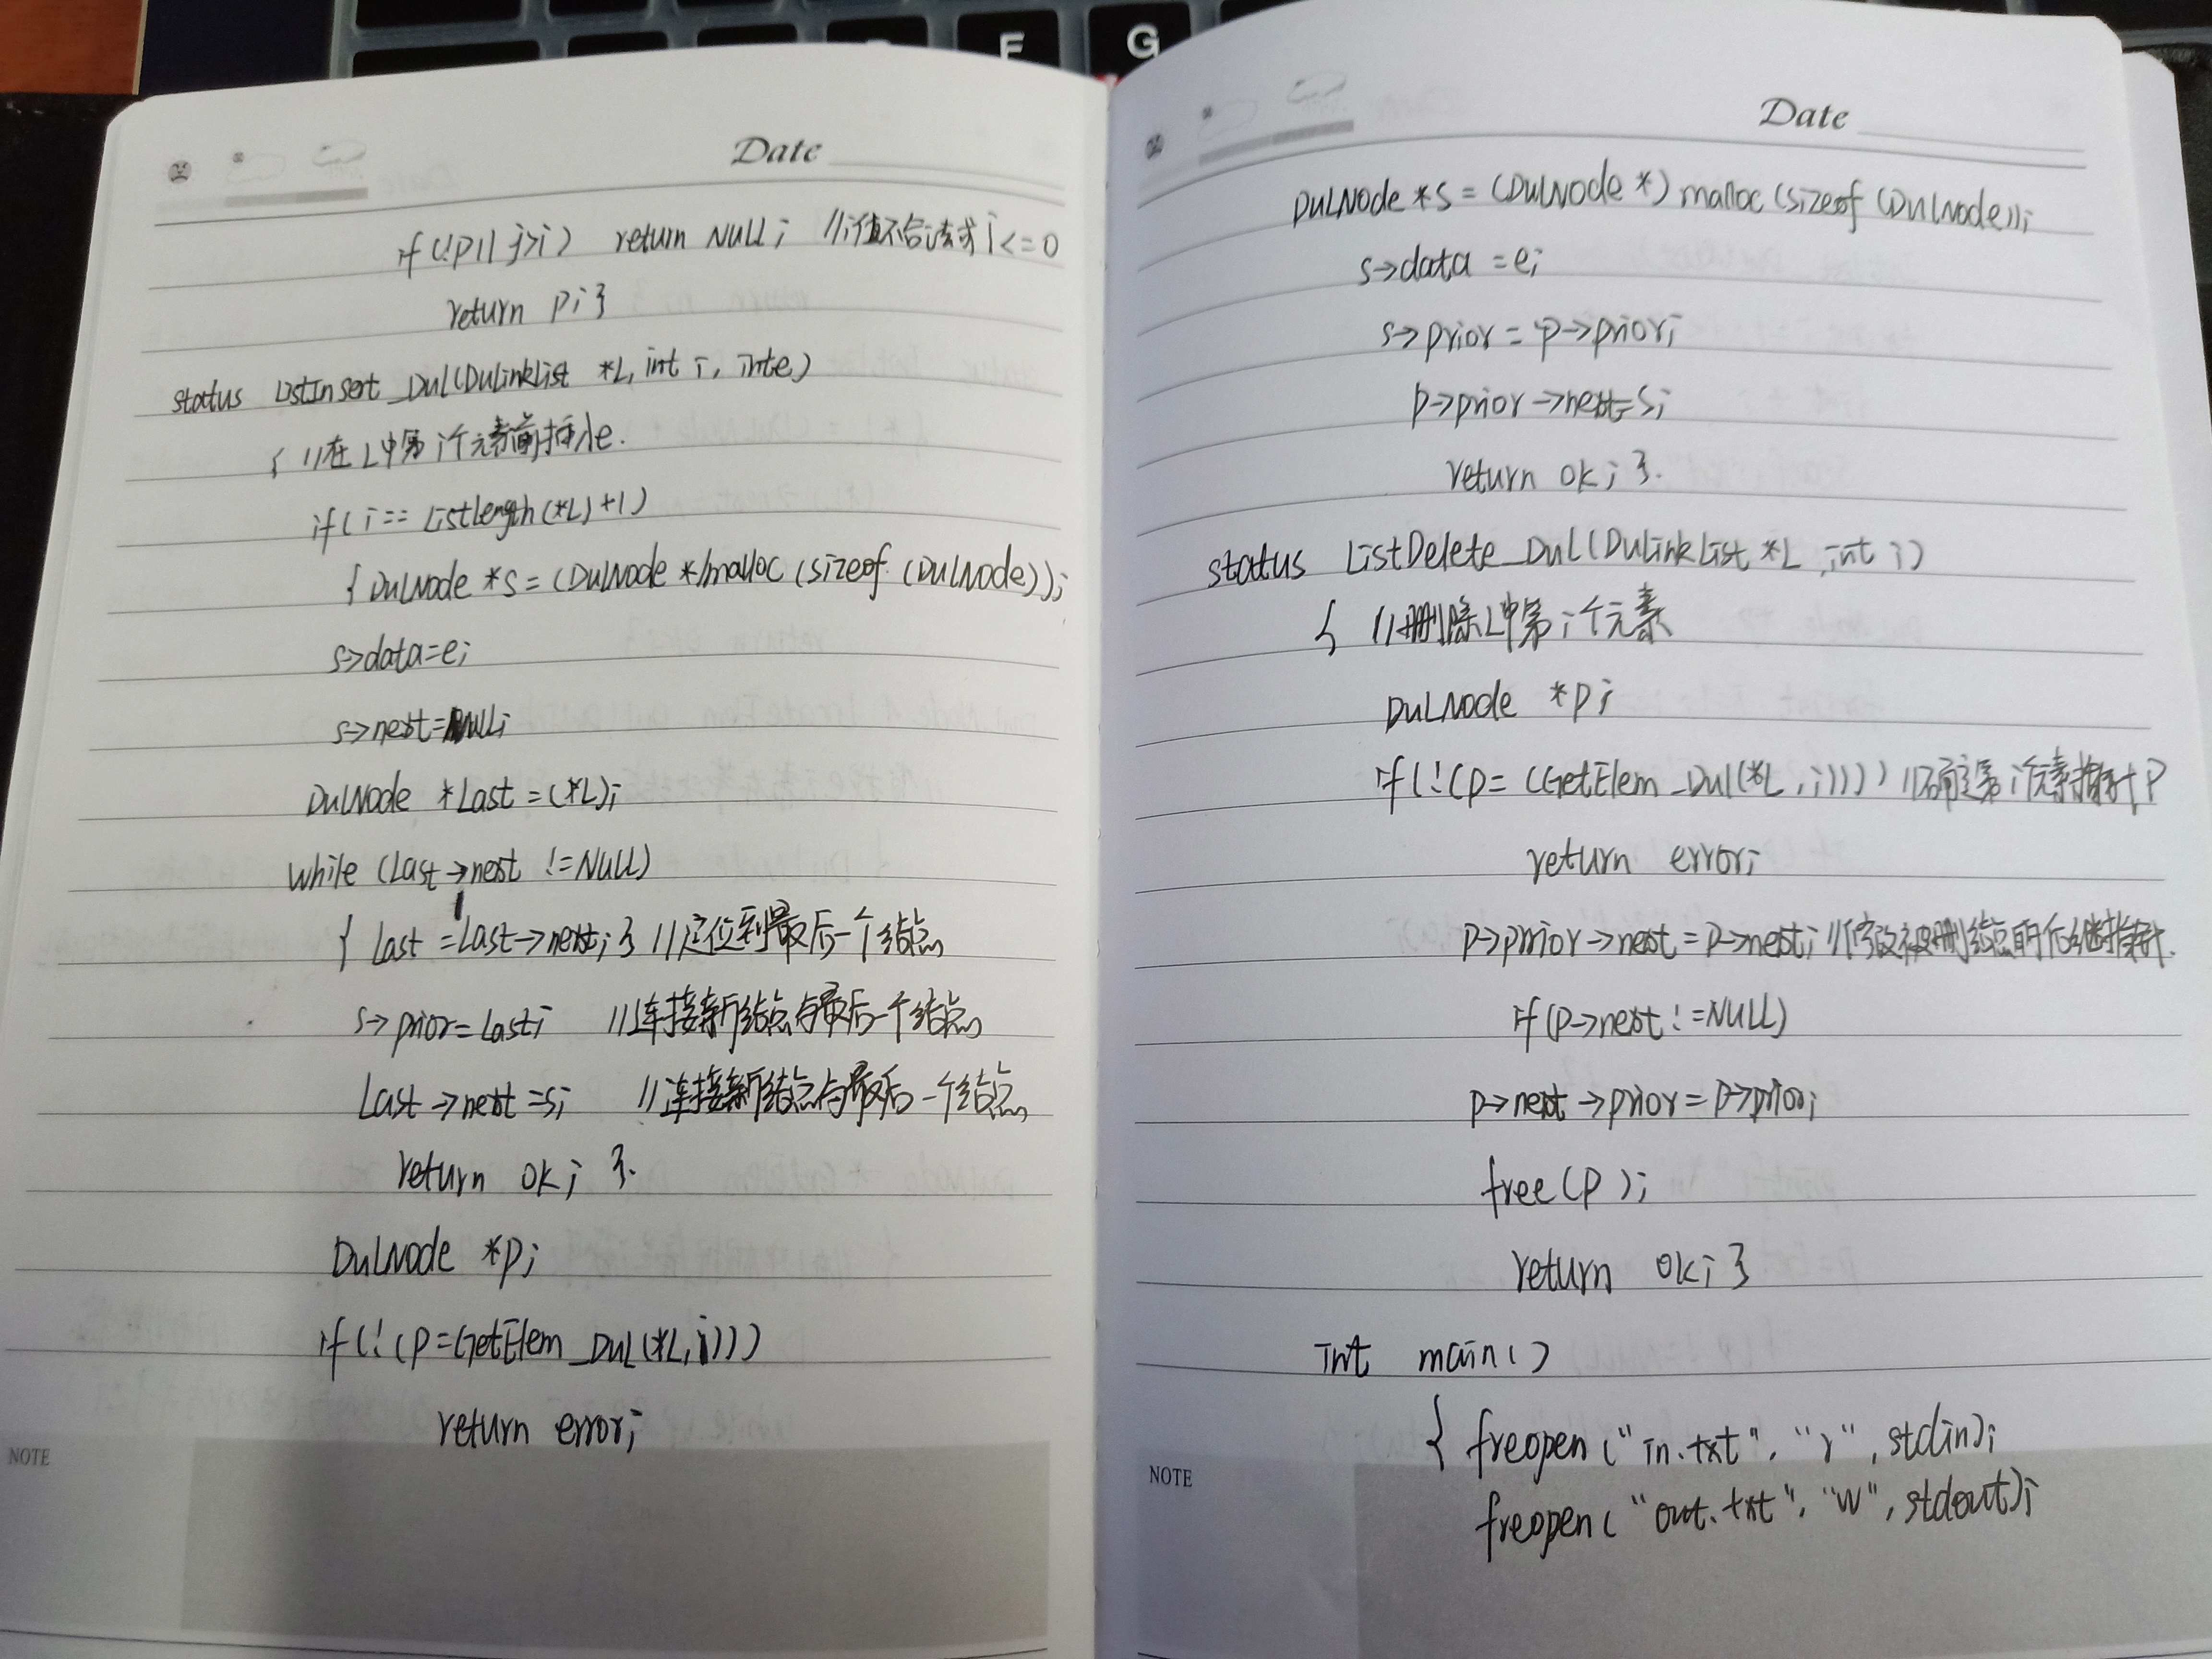 F
G
Date
if(!p||j>i) return NULL; //i值不合法或i<=0
return p;}
status ListInsert_Dul(DuLinkList *L, int i, int e)
{ //在L中第i个元素前插入e.
if(i==ListLength(*L)+1)
{ DulNode *s=(DulNode *)malloc(sizeof(DulNode));
s->data=e;
s->next=NULL;
DulNode *Last=(*L);
while (Last->next !=NULL)
{ Last=Last->next;} //定位到最后一个结点
s->prior=Last; //连接新结点与最后一个结点
Last->next=s; //连接新结点与最后一个结点
return ok; }.
DulNode *p;
if(!(p=GetElem_Dul(*L,i)))
return error;
NOTE
Date
DulNode *s=(DulNode *)malloc(sizeof(DulNode));
s->data=e;
s->prior=p->prior;
p->prior->next=s;
return ok; }.
status ListDelete_Dul(DuLinkList *L, int i)
{ //删除L中第i个元素
DulNode *p;
if(!(p=(GetElem_Dul(*L,i)))) //确定第i个元素指针p
return error;
p->prior->next=p->next; //修改被删结点前后继指针.
if(p->next!=NULL)
p->next->prior=p->prior;
free(p);
return ok;}
int main()
{ freopen("in.txt","r",stdin);
freopen("out.txt","w",stdout);
NOTE